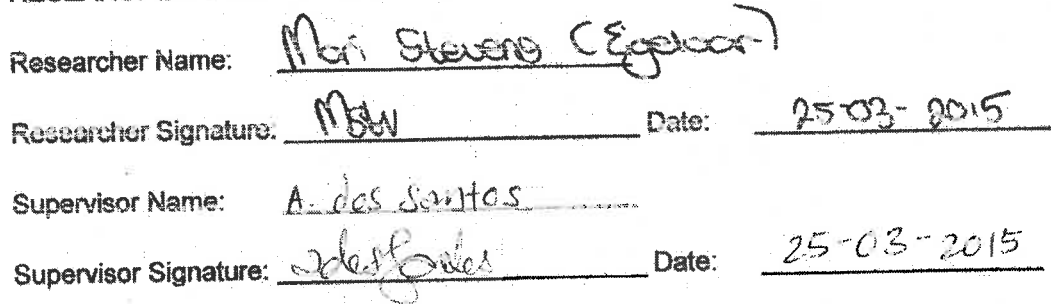 Researcher Name: Mari Stevens (
Researcher Signature: Date: 25-03-2015
Supervisor Name: A. dos Santos
Supervisor Signature: Date: 25-03-2015